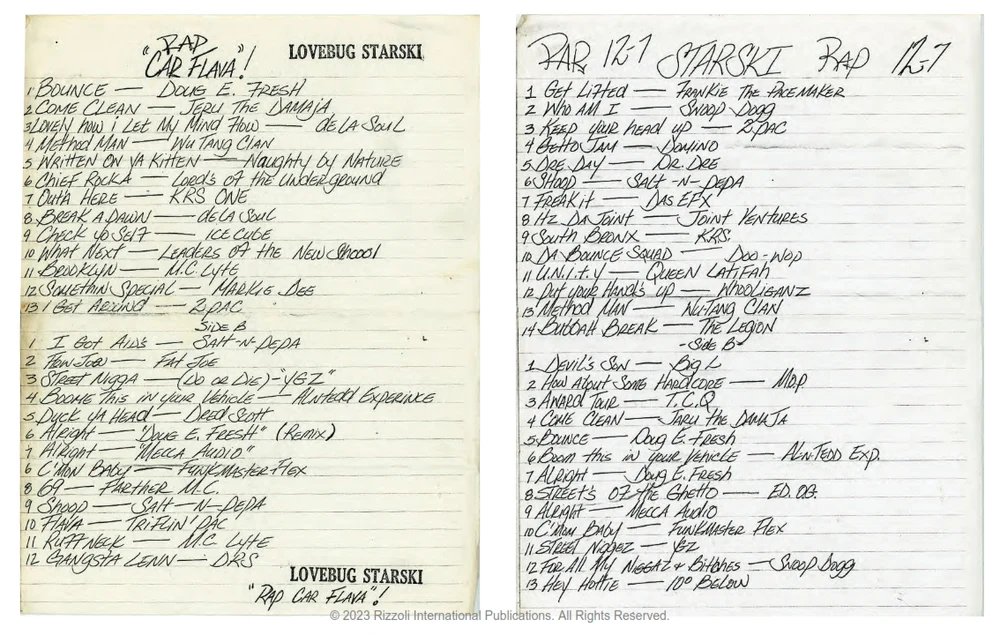 RAP
"CAR FLAVA"!
LOVEBUG STARSKI
1 BOUNCE — DOUG E. FRESH
2 COME CLEAN — JERU THE DAMAJA
3 LOVELY HOW I LET MY MIND FLOW — DE LA SOUL
4 METHOD MAN — WU TANG CLAN
5 WRITTEN ON YA KITTEN — NAUGHTY BY NATURE
6 CHIEF ROCKA — LORD'S OF THE UNDERGROUND
7 OUTA HERE — KRS ONE
8 BREAK A DAWN — DE LA SOUL
9 CHECK YO SELF — ICE CUBE
10 WHAT NEXT — LEADERS OF THE NEW SHCOOL
11 BROOKLYN — M.C. LYTE
12 SOMETHIN SPECIAL — MARKIE DEE
13 I GET AROUND — 2 PAC
SIDE B
1 I GOT AIDS — SALT-N-PEPA
2 FLOW JOE — FAT JOE
3 STREET NIGGA — (DO OR DIE) - "YGZ"
4 BOOME THIS IN YOUR VEHICLE — ALNTEDD EXPERINCE
5 DUCK YA HEAD — DRED SCOTT
6 ALRIGHT — "DOUG E. FRESH" (REMIX)
7 ALRIGHT — "MECCA AUDIO"
6 C'MON BABY — FUNKMASTER FLEX
8 69 — FARTHER M.C.
9 SHOOP — SALT-N-PEPA
10 FLAVA — TRIFLIN' PAC
11 RUFFNECK — M.C. LYTE
12 GANGSTA LENN — DRS
LOVEBUG STARSKI
"RAP CAR FLAVA"!
RAP 12-7 STARSKI RAP 12-7
1 GET LIFTED — FRANKIE THE PACEMAKER
2 WHO AM I — SNOOP DOGG
3 KEEP YOUR HEAD UP — 2 PAC
4 GETTO JAM — DOMINO
5 DRE DAY — DR. DRE
6 SHOOP — SALT-N-PEPA
7 FREAKIT — DAS EFX
8 HZ DA JOINT — JOINT VENTURES
9 SOUTH BRONX — KRS.
10 DA BOUNCE SQUAD — DOO-WOP
11 U.N.I.T.Y — QUEEN LATIFAH
12 PUT YOUR HAND'S UP — WHOOLIGANZ
13 METHOD MAN — WU-TANG CLAN
14 BUDDAH BREAK — THE LEGION
- SIDE B -
1 DEVIL'S SON — BIG L
2 HOW ABOUT SOME HARDCORE — M.O.P
3 AWARD TOUR — T.C.Q
4 COME CLEAN — JARU THE DAMAJA
5 BOUNCE — DOUG E. FRESH
6 BOOM THIS IN YOUR VEHICLE — ALN-TEDD EXP.
7 ALRIGHT — DOUG E. FRESH
8 STREET'S OF THE GHETTO — ED. OG.
9 ALRIGHT — MECCA AUDIO
10 C'MON BABY — FUNKMASTER FLEX
11 STREET NIGGEZ — YGZ
12 FOR ALL MY NIGGAZ & BITCHES — SNOOP DOGG
13 HEY HOTTIE — 10° BELOW
© 2023 Rizzoli International Publications. All Rights Reserved.